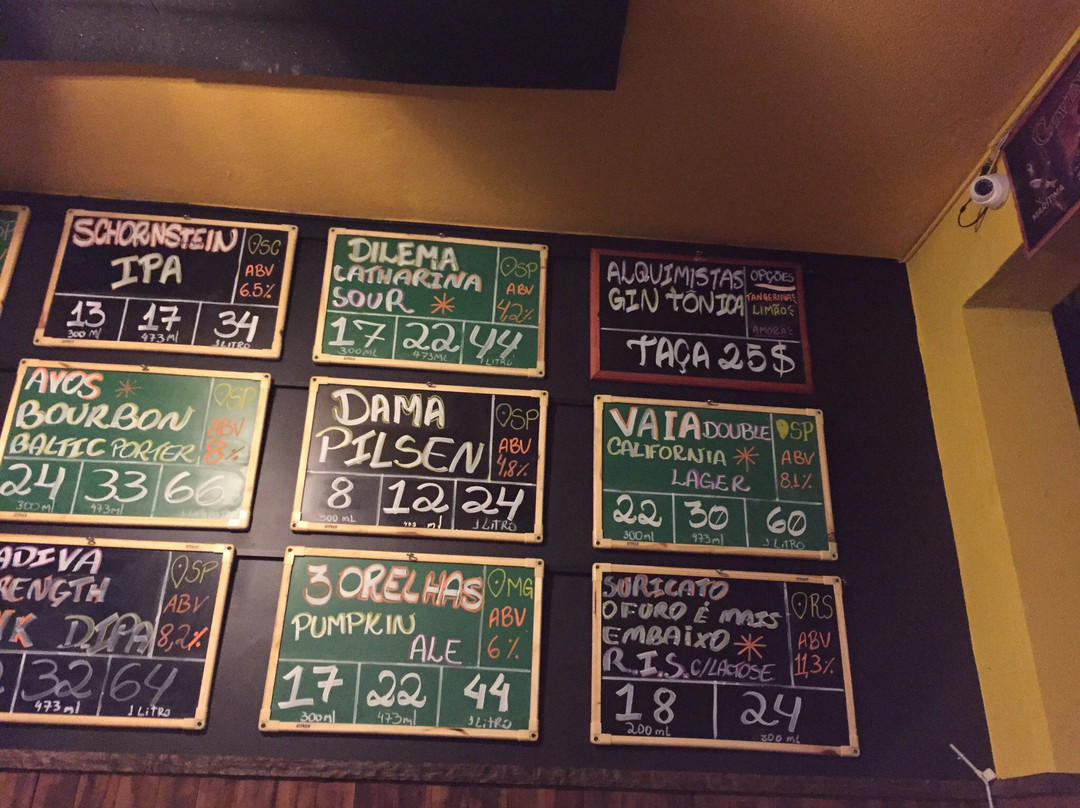 SCHORNSTEIN
IPA
SC
ABV
6.5%
13 17 34
300 ml 473 ml 1 LITRO
DILEMA
CATHARINA
SOUR
SP
ABV
4,2%
17 22 44
300ML 473ML 1 LITRO
ALQUIMISTAS
GIN TÔNICA
OPÇÕES
TANGERINA
LIMÃO
AMORA
TAÇA 25$
AVOS
BOURBON
BALTIC PORTER
SP
ABV
8%
24 33 66
300 ml 473ml 1 LITRO
DAMA
PILSEN
SP
ABV
4,8%
8 12 24
300 ML 473 ml 1 LITRO
VAIA DOUBLE
CALIFORNIA
LAGER
SP
ABV
8.1%
22 30 60
300ml 473ml 1 LITRO
ADIVA
RENGTH
DIPA
SP
ABV
8,2%
32 64
473ml 1 LITRO
3 ORELHAS
PUMPKIN
ALE
MG
ABV
6%
17 22 44
300ml 473ml 1 LITRO
SURICATO
O FURO É MAIS
EMBAIXO
R.I.S. C/LACTOSE
RS
ABV
11,3%
18 24
200 ML 300 ML
MARÍTIMA